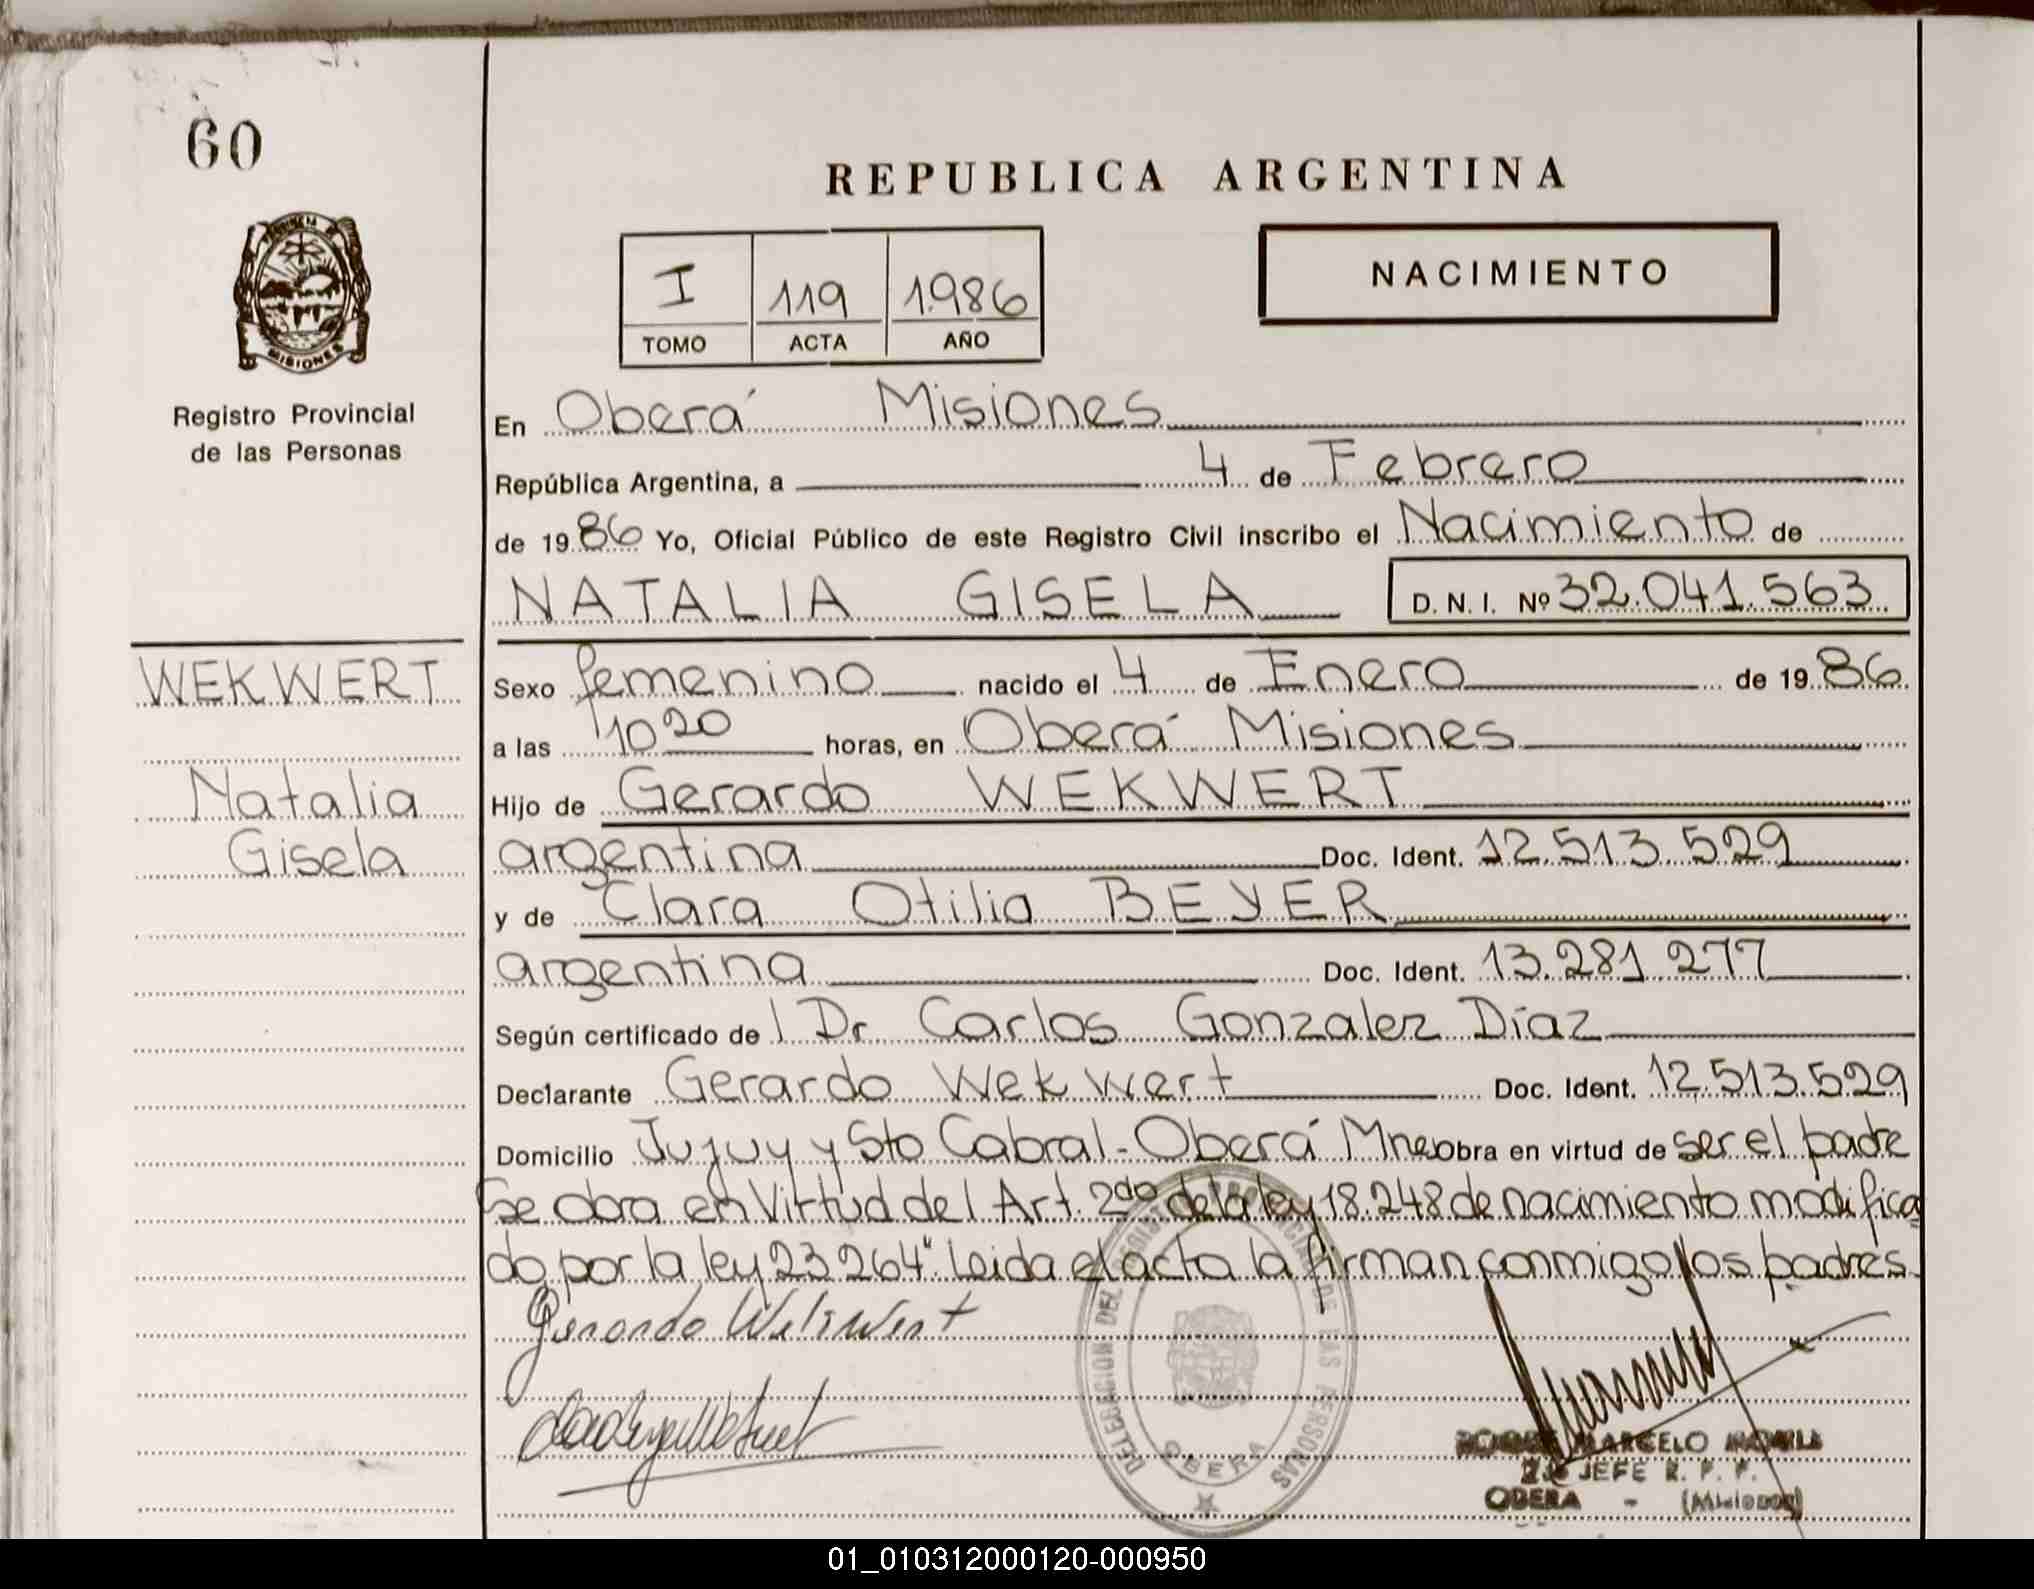 60
REPUBLICA ARGENTINA
NACIMIENTO
I 119 1986
TOMO ACTA AÑO
PROVINCIA DE
MISIONES
Registro Provincial
de las Personas
En Oberá Misiones
República Argentina, a 4 de Febrero
de 1986 Yo, Oficial Público de este Registro Civil inscribo el Nacimiento de
NATALIA GISELA D. N. I. Nº 32.041.563
WEKWERT
Natalia
Gisela
Sexo femenino nacido el 4 de Enero de 1986
a las 10 20 horas, en Oberá Misiones
Hijo de Gerardo WEKWERT
argentina Doc. Ident. 12.513.529
y de Clara Otilia BEYER
argentina Doc. Ident. 13.281.277
Según certificado de l Dr Carlos Gonzalez Díaz
Declarante Gerardo Wekwert Doc. Ident. 12.513.529
Domicilio Jujuy y Sto Cabral - Oberá Mnes obra en virtud de ser el padre
Se obra en Virtud del Art. 2do de la ley 18.248 de nacimiento modifica
do por la ley 23.264". Leida el acta la firman conmigo los padres.
Gerardo Wekwert
DELEGACION DEL REGISTRO PROVINCIAL DE LAS PERSONAS
OBERA
MARCELO
JEFE R. P. P.
OBERA - (Misiones)
01_010312000120-000950